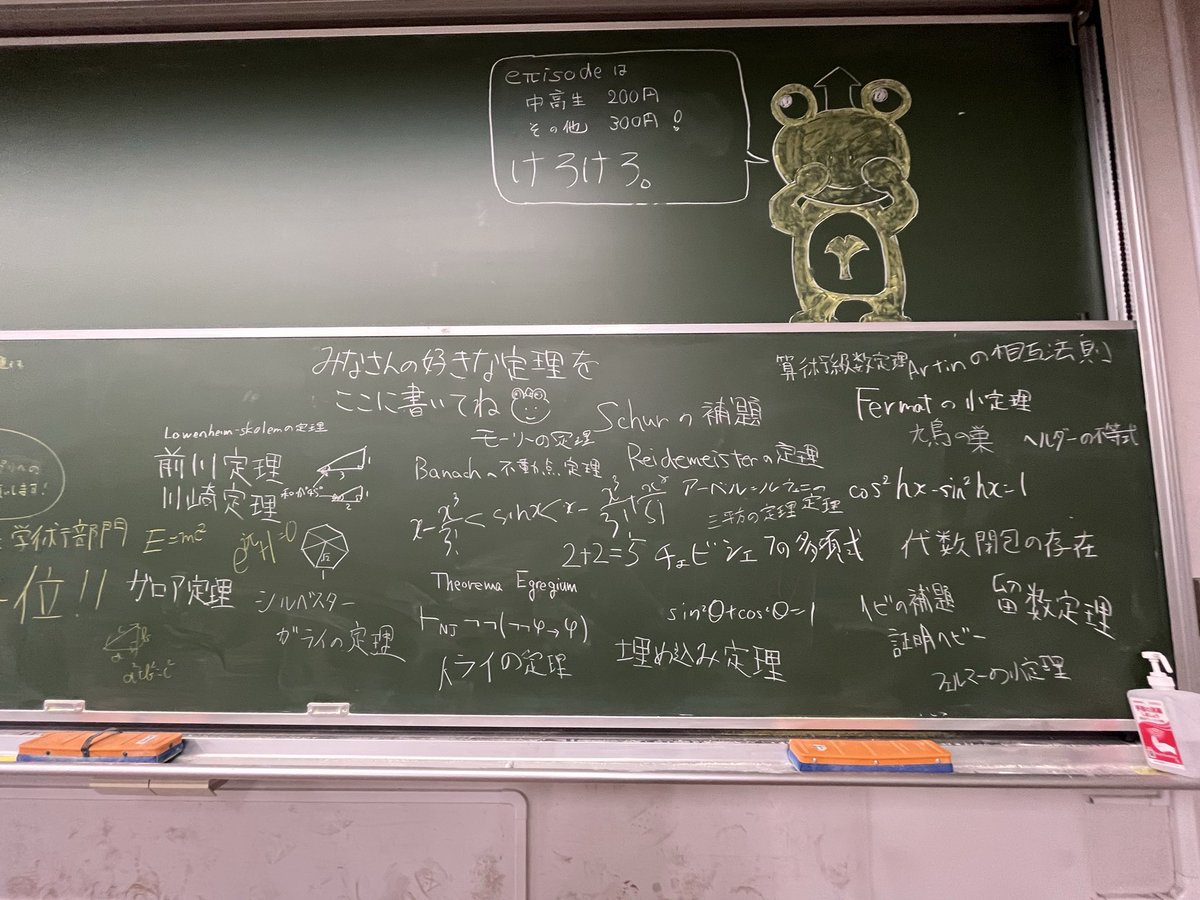 eπisodeは
中高生 200円
その他 300円!
けろけろ。
みなさんの好きな定理を
ここに書いてね
算術級数定理
Artinの相互法則
Schurの補題
Fermatの小定理
九鳥の巣
ヘルダーの不等式
Lowenheim-skolemの定理
モーリーの定理
前川定理
川崎定理
和が45°
Banachの不動点定理
Reidemeisterの定理
アーベル=ルフィニの
三平方の定理 定理
cos²hx-sin²hx=1
x-x³/3!<sinx<x-x³/3!+x⁵/5!
学術部門
一位!!
E=mc²
e^iπ+1=0
2+2=5
チェビシェフの多項式
代数閉包の存在
ガロア定理
シルベスター
ガライの定理
Theorema Egregium
⊢NJ ¬¬(¬¬φ→φ)
sin²θ+cos²θ=1
ヘビの補題
証明ヘビー
留数定理
トライの定理
埋め込み定理
フェルマーの小定理
a²+b²=c²